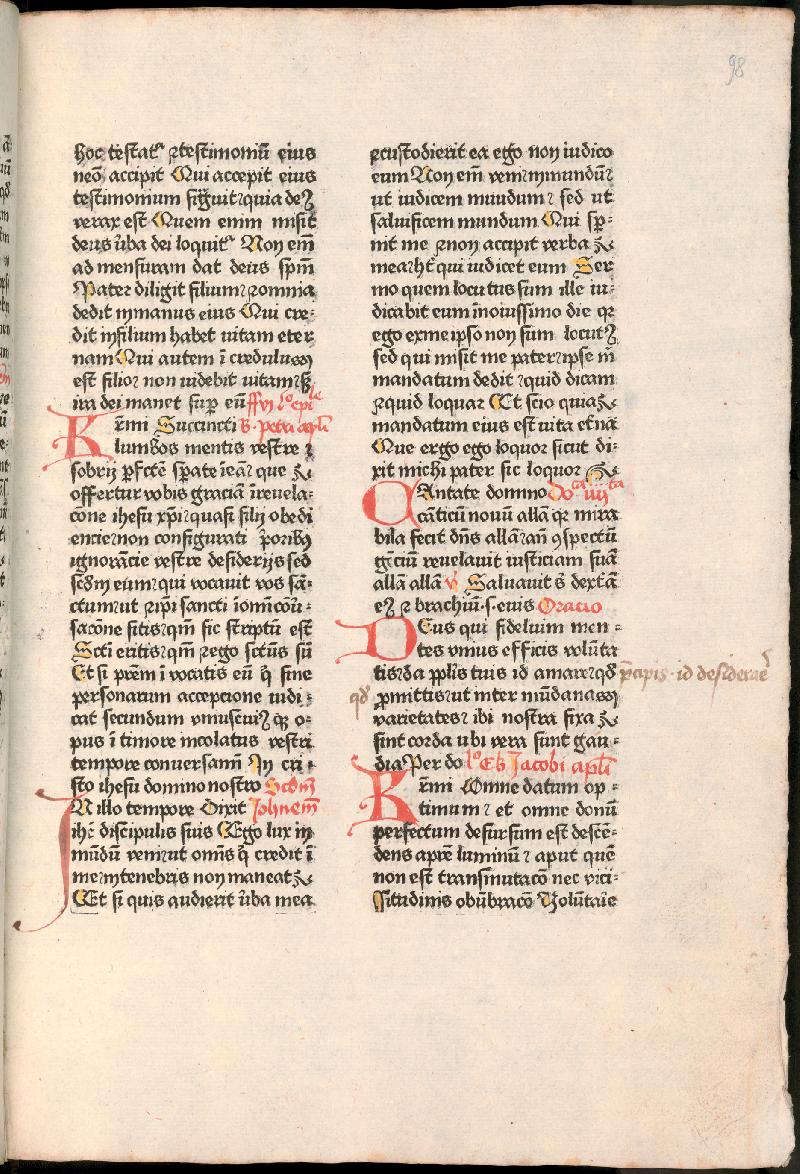 98
hoc testat᷑ ⁊ testimoniū eius
neō accipit Qui accepit eius
testimonium sigͣuit quia deꝰ
verax est Quem enim misit
deus ūba dei loquit᷑ Non em̄
ad mensuram dat deus spm̄
Pater diligit filium ⁊ omnia
dedit in manus eius Qui cre⸗
dit in filium habet uitam eter⸗
nam Qui autem ī credulus
est filio non uidebit uitam sꝫ
ira dei manet suꝑ eū ffvj lº epi le
Krmi Succincti B. petri apl̄i
lumbos mentis vestre ⁊
sobrij ꝑfc̄te sꝑate ī eā que
offertur vobis graciā ī reuela⸗
cōne ihesu xp̄i quasi filij obedi
encie non configurati prioribꝰ
ignorācie vestre desiderijs sed
scd̄m eum qui vocauit vos sā⸗
ctum ut ⁊ ip̄i sancti ī om̄i cōu⸗
sacōne sitis qm̄ sic scriptū est
Scti eritis qm̄ ⁊ ego sctūs sū
Et si prēm ī vocatis eū q̄ sine
personarum accepcione iudi⸗
cat secundum vniuscuiꝰ qꝫ o⸗
pus ī timore incolatus vestri
tempore conuersamī In cri⸗
sto ihesu domno nostro Scd̄m
IN illo tempore Dixit Iohnem̄
ihē discipulis suis Ego lux in
mūdū veni ut omīs q̄ credit ī
me in tenebris non maneat
Et si quis audierit ūba mea
⁊ custodierit ea ego non iudico
eum Non em̄ veni in mundū
ut iudicem mundum sed ut
saluificem mundum Qui sꝑ⸗
nit me ⁊ non accipit verba
mea hꝫ qui iudicet eum Ser
mo quem locutus sum ille iu⸗
dicabit eum ī nouissimo die qꝛ
ego ex me ipso non sum locutꝰ
sed qui misit me pater ipse m̄
mandatum dedit quid dicam
⁊ quid loquar Et scio quia
mandatum eius est vita et̄na
Que ergo ego loquor sicut di⸗
xit michi pater sic loquor
CAntate domno Do ca iiij ta
cāticū nouū alla qꝛ mira
bila fecit dn̄s alla an̄ ꝯspectū
gēciū reuelauit iusticiam suā
alla alla v̄ Saluauit s̄ dextā
eꝰ ⁊ brachiū .s. euis Oracio
DEus qui fideluim men⸗
tes vnius efficis volūta
tis da ppl̄is tuis id amare qd̄ p̄cipis · id desiderare
qd̄ ꝓmittis ut inter mūdanas
varietates ibi nostra fixa
sint corda ubi vera sunt gau⸗
dia Per do lº Eb Jacobi apl̄i
Krmi Omne datum op⸗
timum ⁊ et omne donū
perfectum desursum est descē⸗
dens a prē luminū ⁊ aput quē
non est transmutacō nec vici⸗
situdinis obūbracō Volūtaie